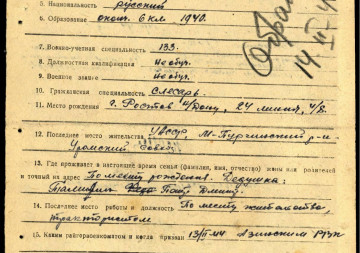 5. Национальность русский
6. Образование оконч. 6 кл 1940.
7. Военно-учетная специальность 133.
8. Должностная квалификация Необуч.
9. Военное звание Необуч.
10. Гражданская специальность Слесарь.
11. Место рождения г. Ростов н/Дону, 24 линия,
12. Последнее место жительства УАССР, р-н
совет.
13. Где проживает в настоящее время семья (фамилия, имя, отчество) жены или родителей
и точный их адрес По месту рождения. Дедушка:
14. Последнее место работы и должность По месту жительства,
трактористом
15. Каким райгорвоенкоматом и когда призван 13/II-44 РВК
14 II 4